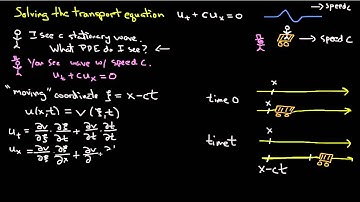 Solving the transport equation u_t + c u_x = 0
→ speed c
I see a stationary wave.
What PDE do I see? ←
You see wave w/ speed c.
u_t + c u_x = 0
→ speed c
"moving" coordinate ξ = x - ct
u(x,t) = v(ξ,t)
u_t = ∂v/∂ξ · ∂ξ/∂t + ∂v/∂t · ∂t/∂t
u_x = ∂v/∂ξ · ∂ξ/∂x + ∂v/∂
x
time 0
x
x
time t
x-ct